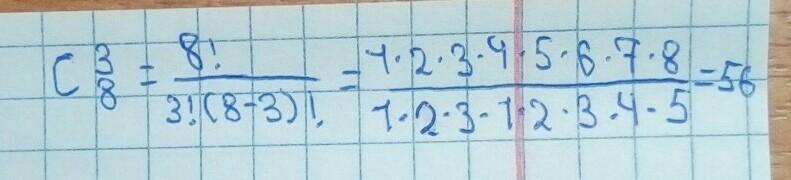 C 3/8 = 8!/3!(8-3)! = 1·2·3·4·5·6·7·8/1·2·3·1·2·3·4·5 = 56